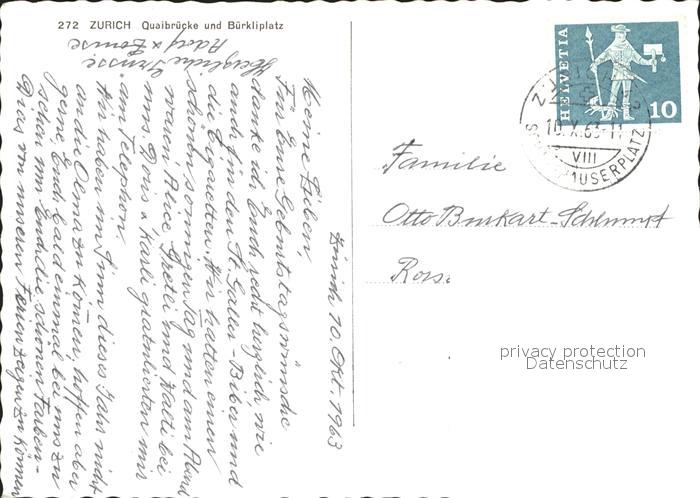 272 ZURICH Quaibrücke und Bürkliplatz
Zürich 10. Okt. 1963
Meine Lieben,
Für Eure Geburtstagswünsche
danke ich Euch recht herzlich wie
auch für den St. Galler-Biber und
die Zigaretten. Wir hatten einen
schönen sonnigen Tag und am Abend
waren Alice, Gretli und Walti bei
uns. Doris & Karli gratulierten mir
am Telephon.
Wir haben im Sinn dieses Jahr nicht
an die Olma zu kommen, hoffen aber
gerne, Euch bald einmal bei uns zu
sehen um Euch die schönen Farben-
Dias von unseren Ferien zeigen zu können
Herzliche Grüsse
Adolf & Louise
HELVETIA
10
10.X.63-11
VIII
Familie
Otto Burkart-Schlumpf
privacy protection
Datenschutz